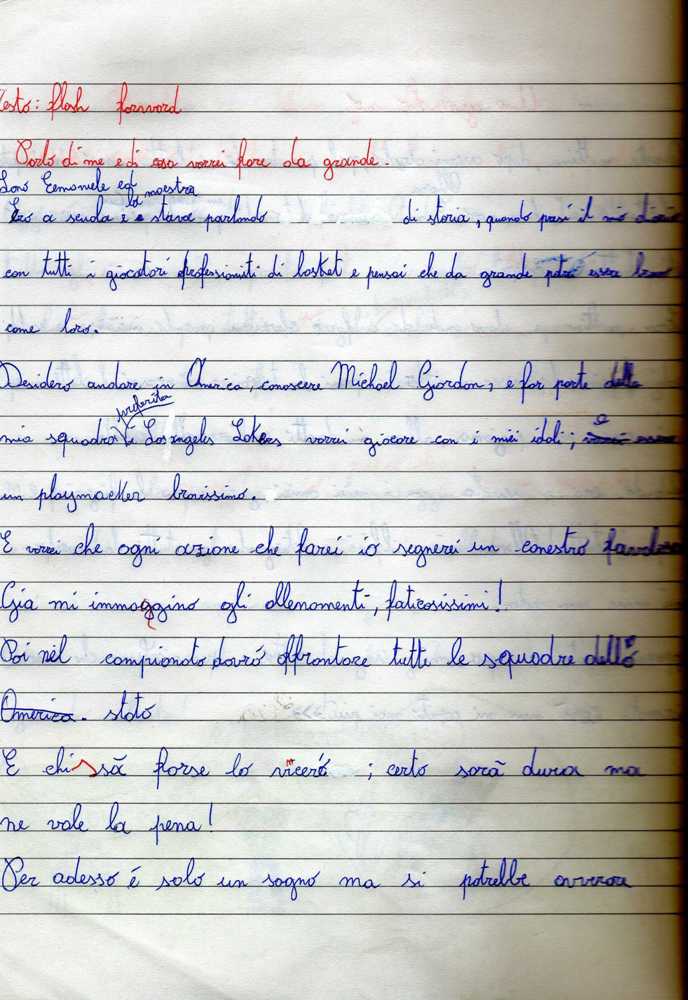 Testo: flash forword
Parlo di me e di cosa vorrei fare da grande.
Sono Eemanuele ed la maestra
Ero a scuola e stava parlando di storia, quando presi il mio diario
con tutti i giocatori professionisti di basket e pensai che da grande potrò essere bravo
come loro.
Desidero andare in America, conoscere Michael Giordon, e far parte della
preferita
mia squadra i Los Angeles Lakers vorrei giocare con i miei idoli; e
un playmacker bravissimo.
E vorrei che ogni azione che farei io segnerei un canestro favoloso
Gia mi immagino gli allenamenti, faticosissimi!
Poi nel campionato dovrò affrontare tutte le squadre dello
America. stato
E chissà forse lo vincerò ; certo sarà dura ma
ne vale la pena!
Per adesso é solo un sogno ma si potrebbe avverare